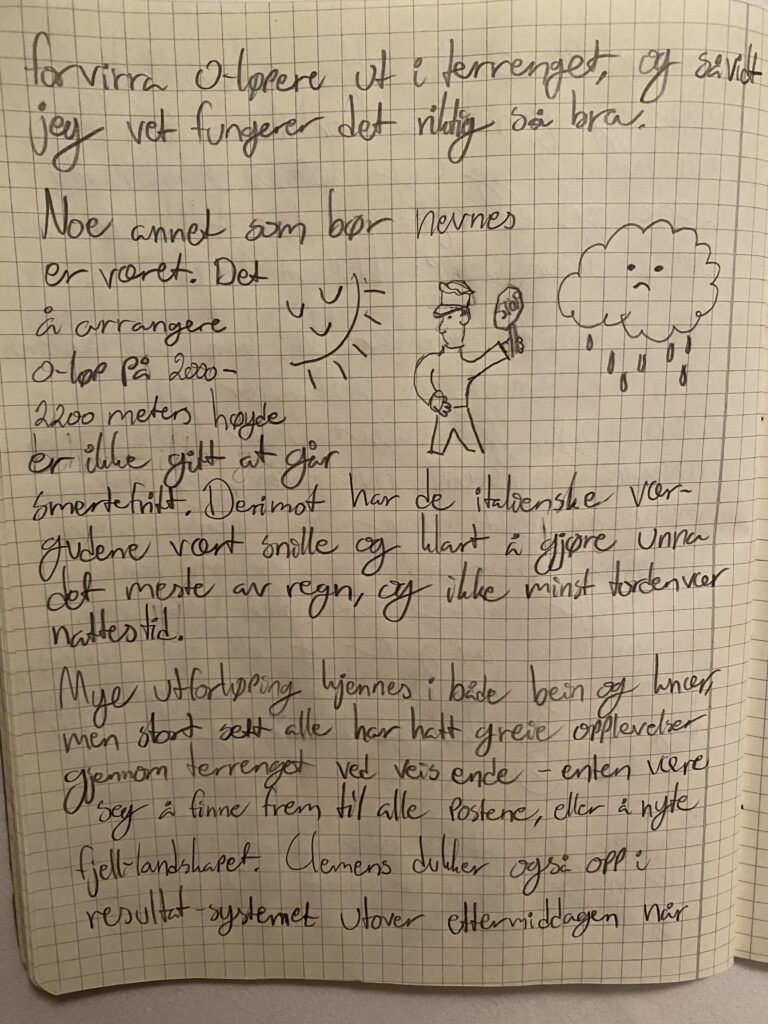 forvirra O-løpere ut i terrenget, og såvidt
jeg vet fungerer det riktig så bra.
Noe annet som bør nevnes
er været. Det
å arrangere
O-løp på 2000-
2200 meters høyde
er ikke gitt at går
smertefritt. Derimot har de italienske vær-
gudene vært snille og klart å gjøre unna
det meste av regn, og ikke minst tordenvær
nattestid.
STOP
Mye utforløping kjennes i både bein og knær,
men stort sett alle har hatt greie opplevelser
gjennom terrenget ved veis ende - enten være
seg å finne frem til alle postene, eller å nyte
fjell-landskapet. Clemens dukker også opp i
resultat-systemet utover ettermiddagen når